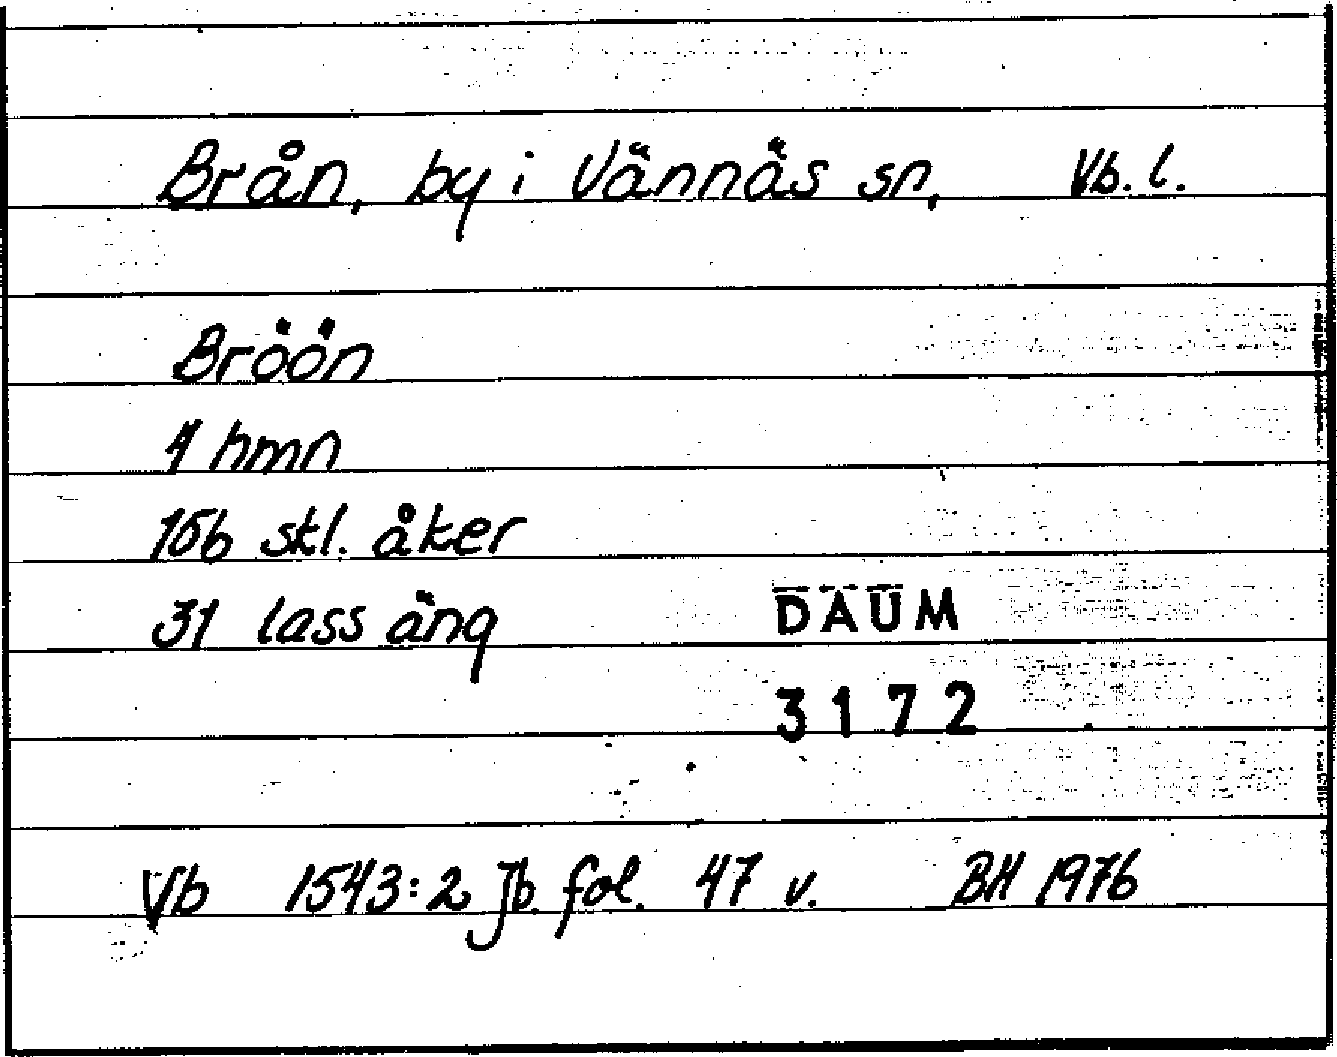 Brån, by i Vännäs sn, Vb. l.
Bröön
1 hmn
156 skl. åker
31 lass äng
DAUM
3172
Vb 1543:2 Jb. fol. 47 v. BH 1976